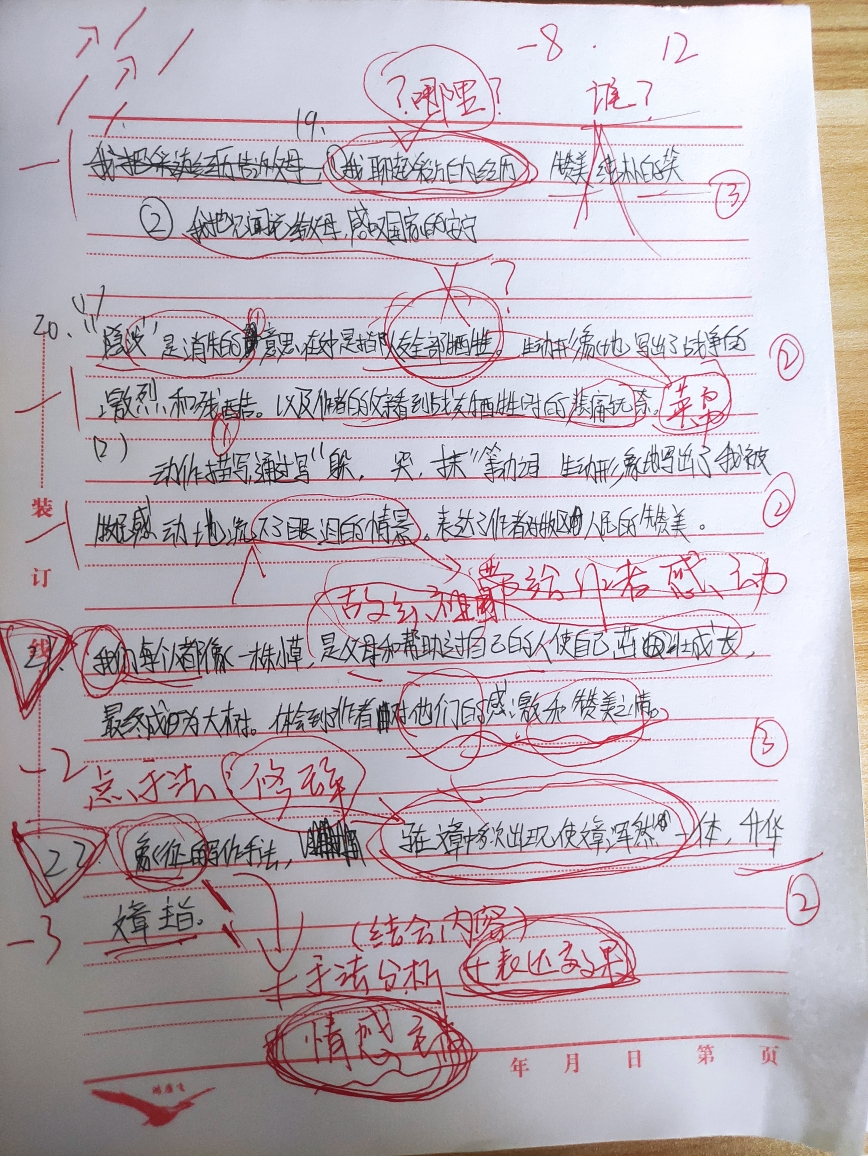 -8. 12
?哪里? 谁?
19.
我把采访经历告诉父母,①我聊起采访的经历 赞美纯朴的笑
③
②
感叹国家的安宁
?
20. (1)
"隐没"是消失的意思,在文中是指队友全部牺牲。生动形象地写出了战争的
②
激烈和残酷。以及作者的亲看到战友牺牲时的悲痛无奈。
(2)
动作描写,通过写"躲,哭,抹"等动词 生动形象地写出了我被
②
感动地流下了眼泪的情景。表达了作者对牧区人民的赞美。
带给作者感动
故乡、祖国
21. 我们每个人都像一株小草,是父母和帮助过自己的人使自己茁壮成长,
最终成为大树。体会到了作者对他们的感激和赞美之情。
③
-2
点、手法:修辞
22. 象征的写作手法, 在文章中多次出现,使文章浑然一体,升华
②
-3
文章主旨。
(结合内容)
+手法分析 +表达效果
+情感主旨
装
订
线
年 月 日 第 页